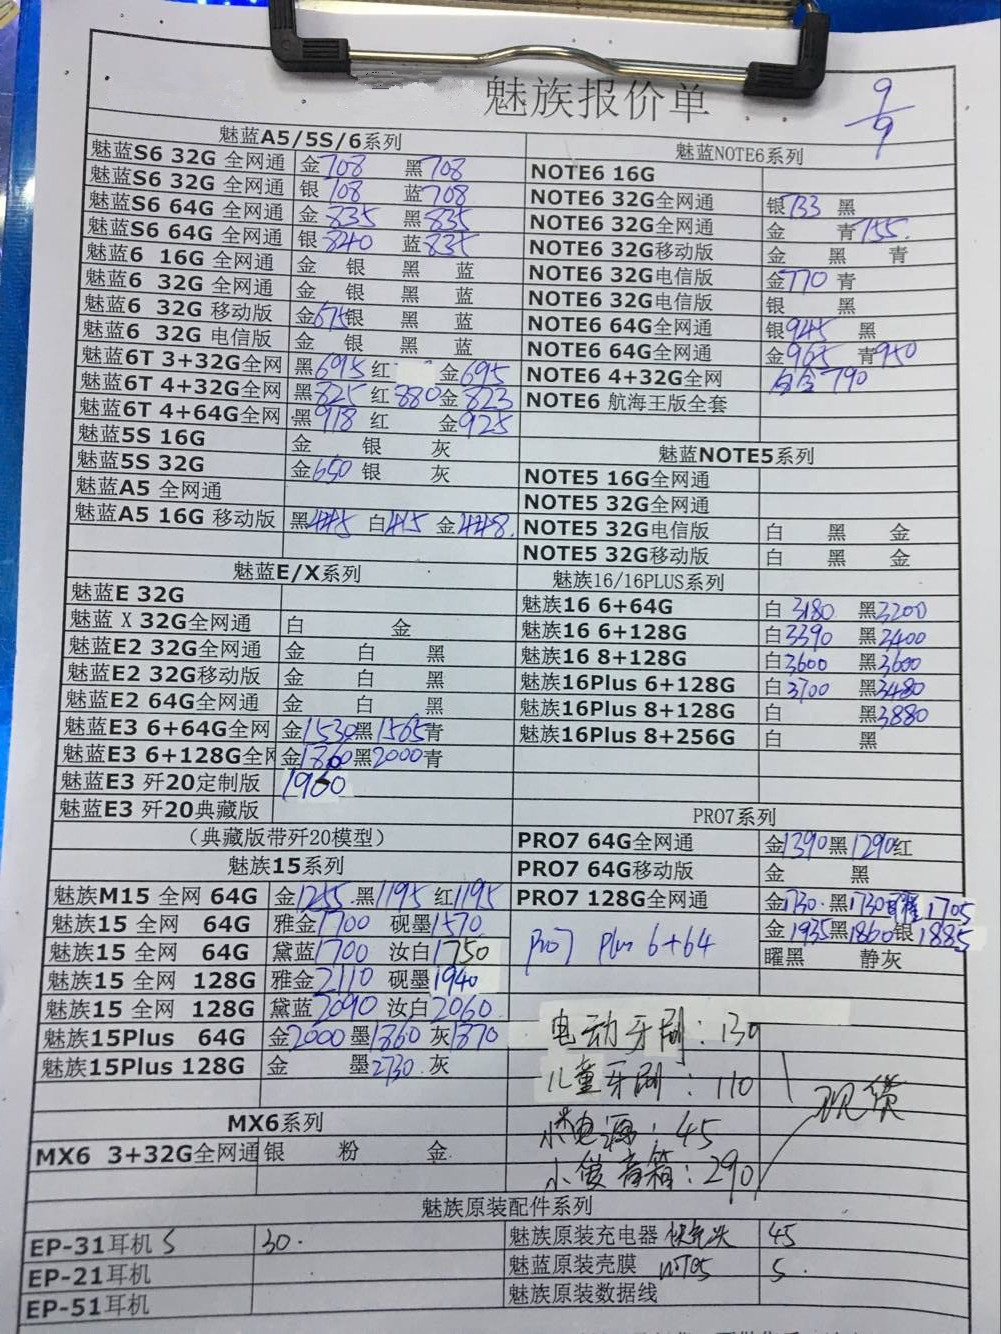 魅族报价单
9/9
魅蓝A5/5S/6系列
魅蓝S6 32G 全网通 金708 黑708
魅蓝S6 32G 全网通 银708 蓝708
魅蓝S6 64G 全网通 金835 黑835
魅蓝S6 64G 全网通 银840 蓝835
魅蓝6 16G 全网通 金 银 黑 蓝
魅蓝6 32G 全网通 金 银 黑 蓝
魅蓝6 32G 移动版 金675银 黑 蓝
魅蓝6 32G 电信版 金 银 黑 蓝
魅蓝6T 3+32G全网 黑695 红 金695
魅蓝6T 4+32G全网 黑825 红880金823
魅蓝6T 4+64G全网 黑918 红 金925
魅蓝5S 16G 金 银 灰
魅蓝5S 32G 金650 银 灰
魅蓝A5 全网通
魅蓝A5 16G 移动版 黑445 白415 金448.
魅蓝E/X系列
魅蓝E 32G
魅蓝 X 32G全网通 白 金
魅蓝E2 32G全网通 金 白 黑
魅蓝E2 32G移动版 金 白 黑
魅蓝E2 64G全网通 金 白 黑
魅蓝E3 6+64G全网 金1530黑1565青
魅蓝E3 6+128G全网 金1860黑2000青
魅蓝E3 歼20定制版 1960
魅蓝E3 歼20典藏版
(典藏版带歼20模型)
魅族15系列
魅族M15 全网 64G 金1255 黑1195 红1195
魅族15 全网 64G 雅金1700 砚墨1570
魅族15 全网 64G 黛蓝1700 汝白1750
魅族15 全网 128G 雅金2110 砚墨1940
魅族15 全网 128G 黛蓝2090 汝白2060
魅族15Plus 64G 金2000 墨1860 灰1870
魅族15Plus 128G 金 墨2730 灰
MX6系列
MX6 3+32G全网通 银 粉 金
魅蓝NOTE6系列
NOTE6 16G
NOTE6 32G全网通 银733 黑
NOTE6 32G全网通 金 青755.
NOTE6 32G移动版 金 黑 青
NOTE6 32G电信版 金770 青
NOTE6 32G电信版 银 黑
NOTE6 64G全网通 银945 黑
NOTE6 64G全网通 金965 青950
NOTE6 4+32G全网 790
NOTE6 航海王版全套
魅蓝NOTE5系列
NOTE5 16G全网通
NOTE5 32G全网通
NOTE5 32G电信版 白 黑 金
NOTE5 32G移动版 白 黑 金
魅族16/16PLUS系列
魅族16 6+64G 白3180 黑3200
魅族16 6+128G 白3390 黑3400
魅族16 8+128G 白3600 黑3600
魅族16Plus 6+128G 白3700 黑3480
魅族16Plus 8+128G 白 黑3880
魅族16Plus 8+256G 白 黑
PRO7系列
PRO7 64G全网通 金1390黑1290红
PRO7 64G移动版 金 黑
PRO7 128G全网通 金1730 黑1730 1705
Pro7 Plus 6+64 金1935黑1860银1885
曜黑 静灰
电动牙刷:130
儿童牙刷:110
电源:45
小傻音箱:290
现货
魅族原装配件系列
EP-31耳机 S 30.
EP-21耳机
EP-51耳机
魅族原装充电器 快充头 45
魅蓝原装壳膜 NOTE5 5.
魅族原装数据线